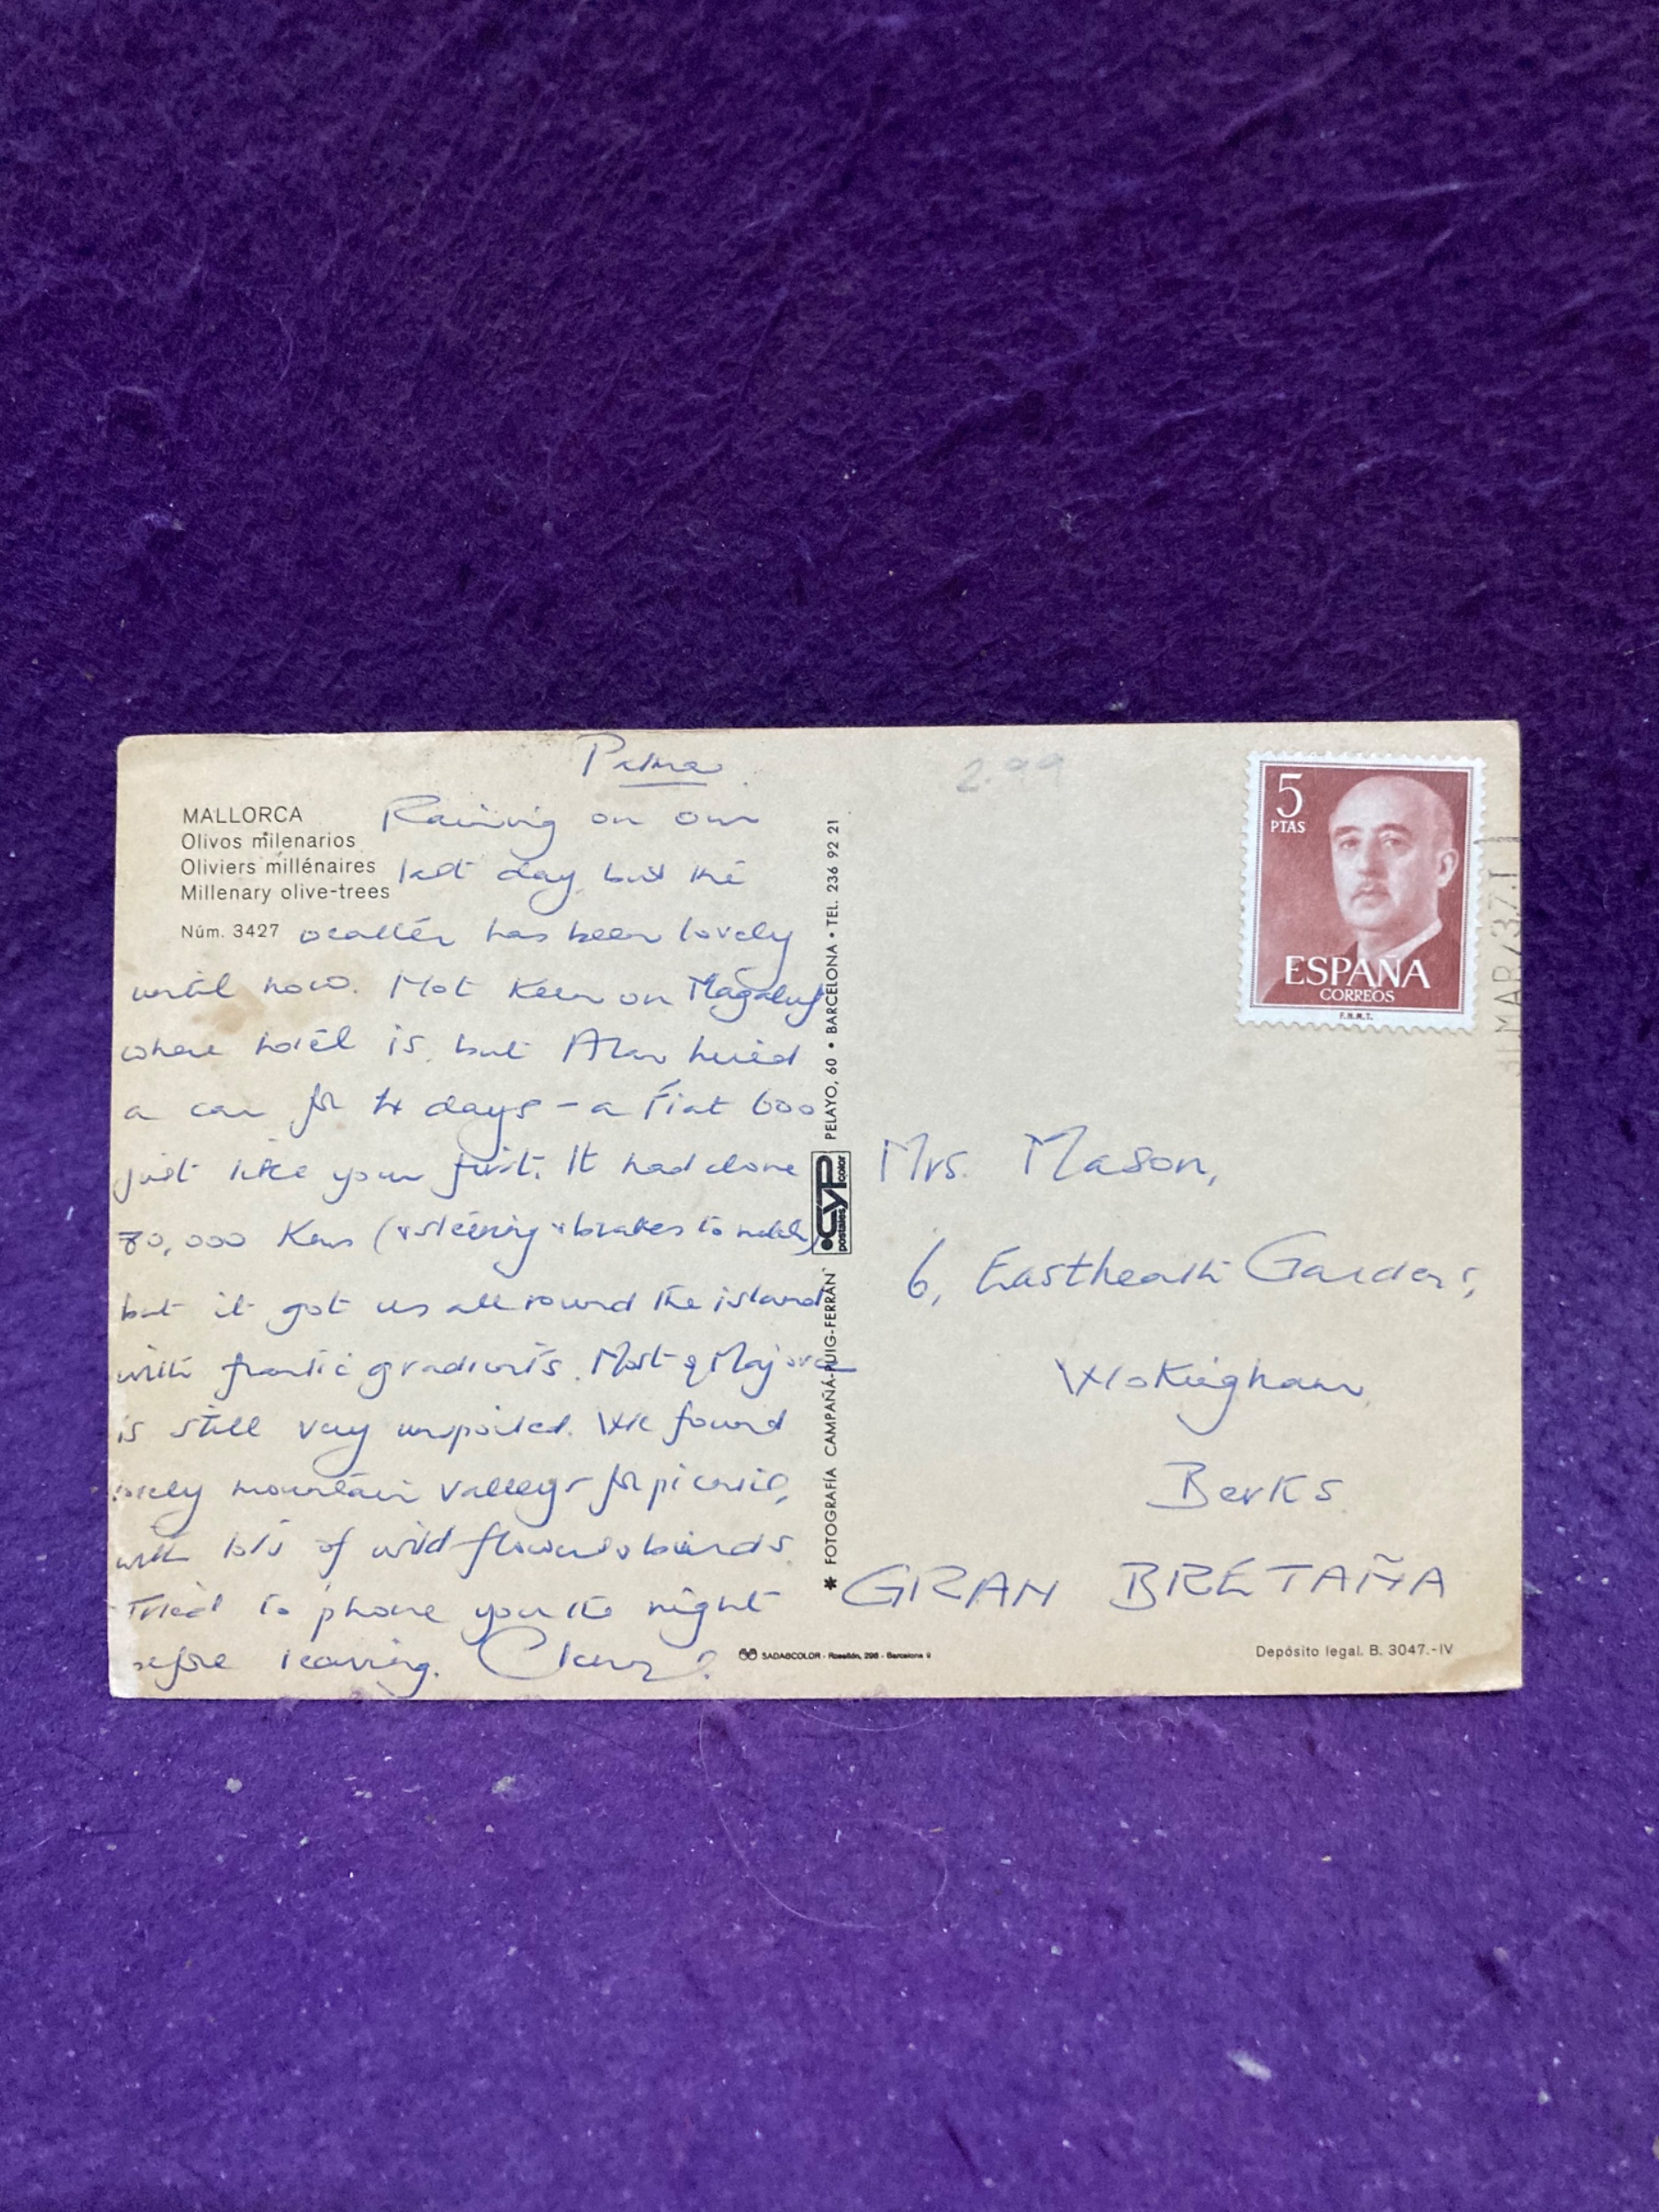 Palma
MALLORCA
Olivos milenarios
Oliviers millénaires
Millenary olive-trees
Núm. 3427
Raining on our
last day, but the
weather has been lovely
until now. Not keen on Magaluf
where hotel is, but Alan hired
a car for 4 days – a Fiat 600
just like your first. It had done
70,000 Kms (& steering & brakes to match)
but it got us all round the island
with frantic gradients. Most of Majorca
is still very unspoiled. We found
lovely mountain valleys for picnic,
with lots of wild flowers & birds
Tried to phone you the night
before leaving.
* FOTOGRAFÍA CAMPAÑÁ-PUIG-FERRÁN
CYP
postales color
PELAYO, 60 • BARCELONA • TEL. 236 92 21
SADAGCOLOR - Rosellón, 298 - Barcelona
2.99
5
PTAS
ESPAÑA
CORREOS
F.N.M.T.
MAR
Mrs. Mason,
6, Eastheath Gardens,
Wokingham,
Berks
GRAN BRETAÑA
Depósito legal. B. 3047.-IV